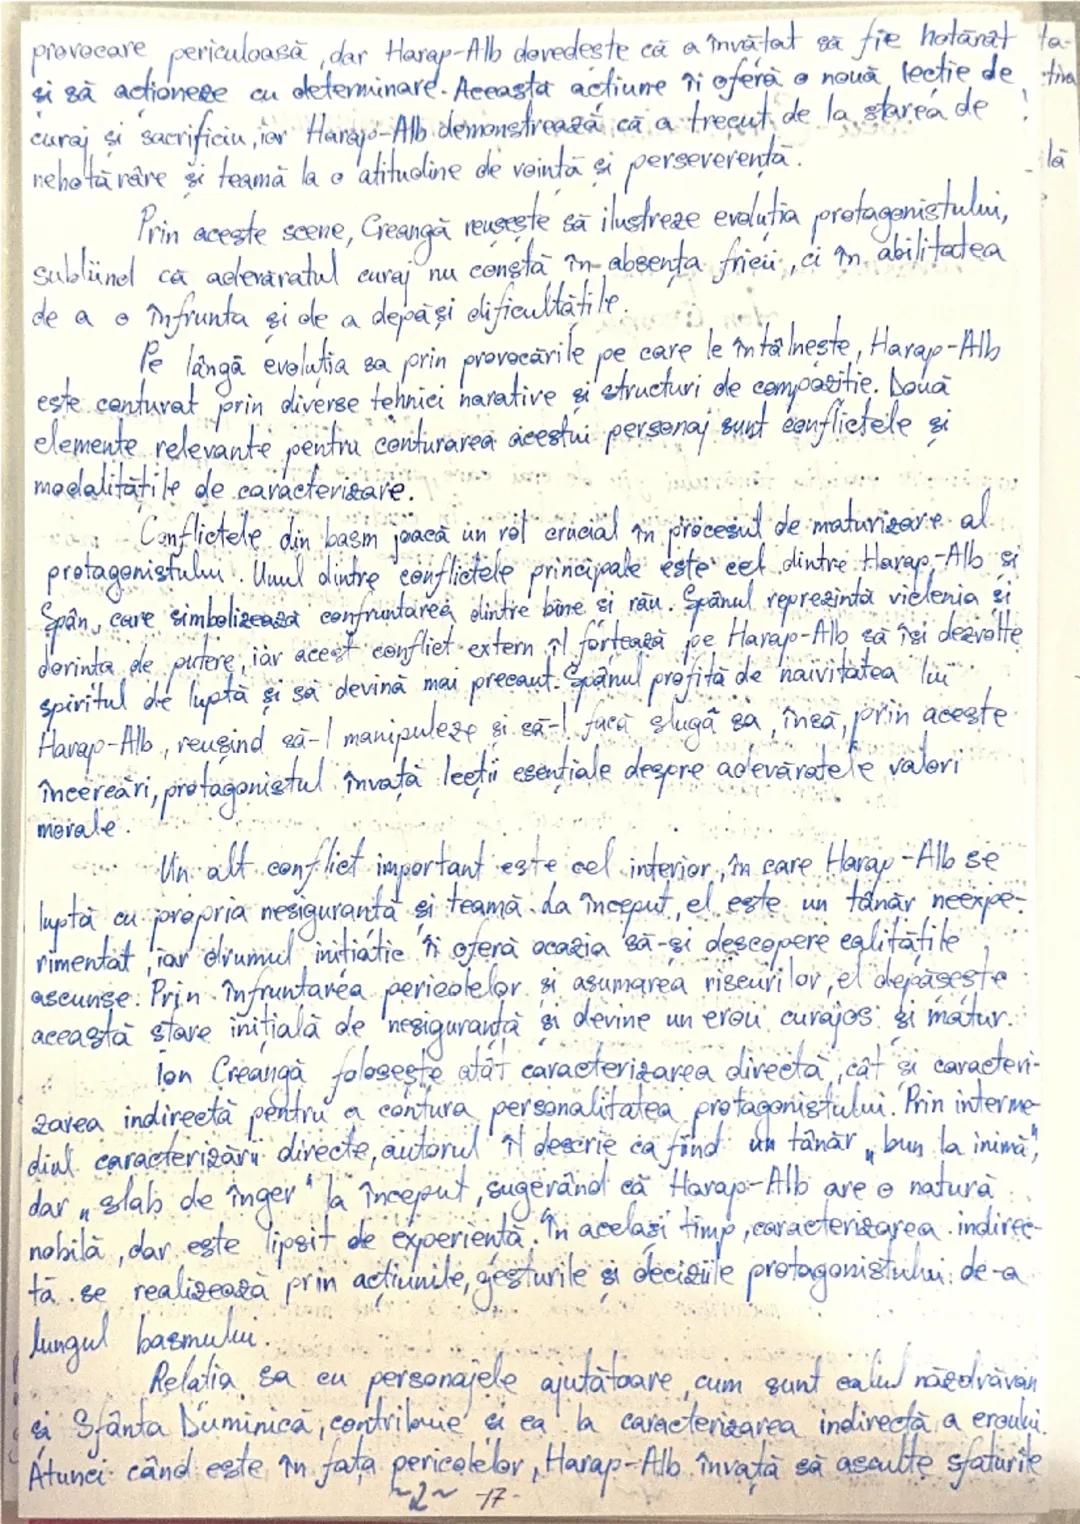 provocare periculoasă, dar Harap-Alb dovedește că a învățat să fie hotărât
și să acționeze cu determinare. Această acțiune îi oferă o nouă lecție de
curaj și sacrificiu, iar Harap-Alb demonstrează că a trecut de la starea de
nehotărâre și teamă la o atitudine de voință și perseverență.
Prin aceste scene, Creangă reușește să ilustreze evoluția protagonistului,
subliind că adevăratul curaj nu constă în absența fricii, ci în abilitatea
de a o înfrunta și de a depăși dificultățile.
Pe lângă evoluția sa prin provocările pe care le întâlnește, Harap-Alb
este conturat prin diverse tehnici narative și structuri de compoziție. Două
elemente relevante pentru conturarea acestui personaj sunt conflictele și
modalitățile de caracterizare.
Conflictele din basm joacă un rol crucial în procesul de maturizare al
protagonistului. Unul dintre conflictele principale este cel dintre Harap-Alb și
Spân, care simbolizează confruntarea dintre bine și rău. Spânul reprezintă viclenia și
dorința de putere, iar acest conflict extern îl forțează pe Harap-Alb să își dezvolte
spiritul de luptă și să devină mai precaut. Spânul profită de naivitatea lui
Harap-Alb, reușind să-l manipuleze și să-l facă slugă sa, însă, prin aceste
încercări, protagonistul învață lecții esențiale despre adevăratele valori
morale.
Un alt conflict important este cel interior, în care Harap-Alb se
luptă cu propria nesiguranță și teamă. La început, el este un tânăr neexpe-
rimentat, iar drumul inițiatic îi oferă ocazia să-și descopere calitățile
ascunse. Prin înfruntarea pericolelor și asumarea riscurilor, el depășește
această stare inițială de nesiguranță și devine un erou curajos și matur.
Ion Creangă folosește atât caracterizarea directă, cât și caracteri-
zarea indirectă pentru a contura personalitatea protagonistului. Prin interme-
diul caracterizării directe, autorul îl descrie ca fiind un tânăr „bun la inimă",
dar „slab de înger" la început, sugerând că Harap-Alb are o natură
nobilă, dar este lipsit de experiență. În același timp, caracterizarea indirec-
tă se realizează prin acțiunile, gesturile și deciziile protagonistului de-a
lungul basmului.
Relația sa cu personajele ajutătoare, cum sunt calul năzdrăvan
și Sfânta Duminică, contribuie și ea la caracterizarea indirectă a eroului.
Atunci când este în fața pericolelor, Harap-Alb învață să asculte sfaturile
~2~ -17-